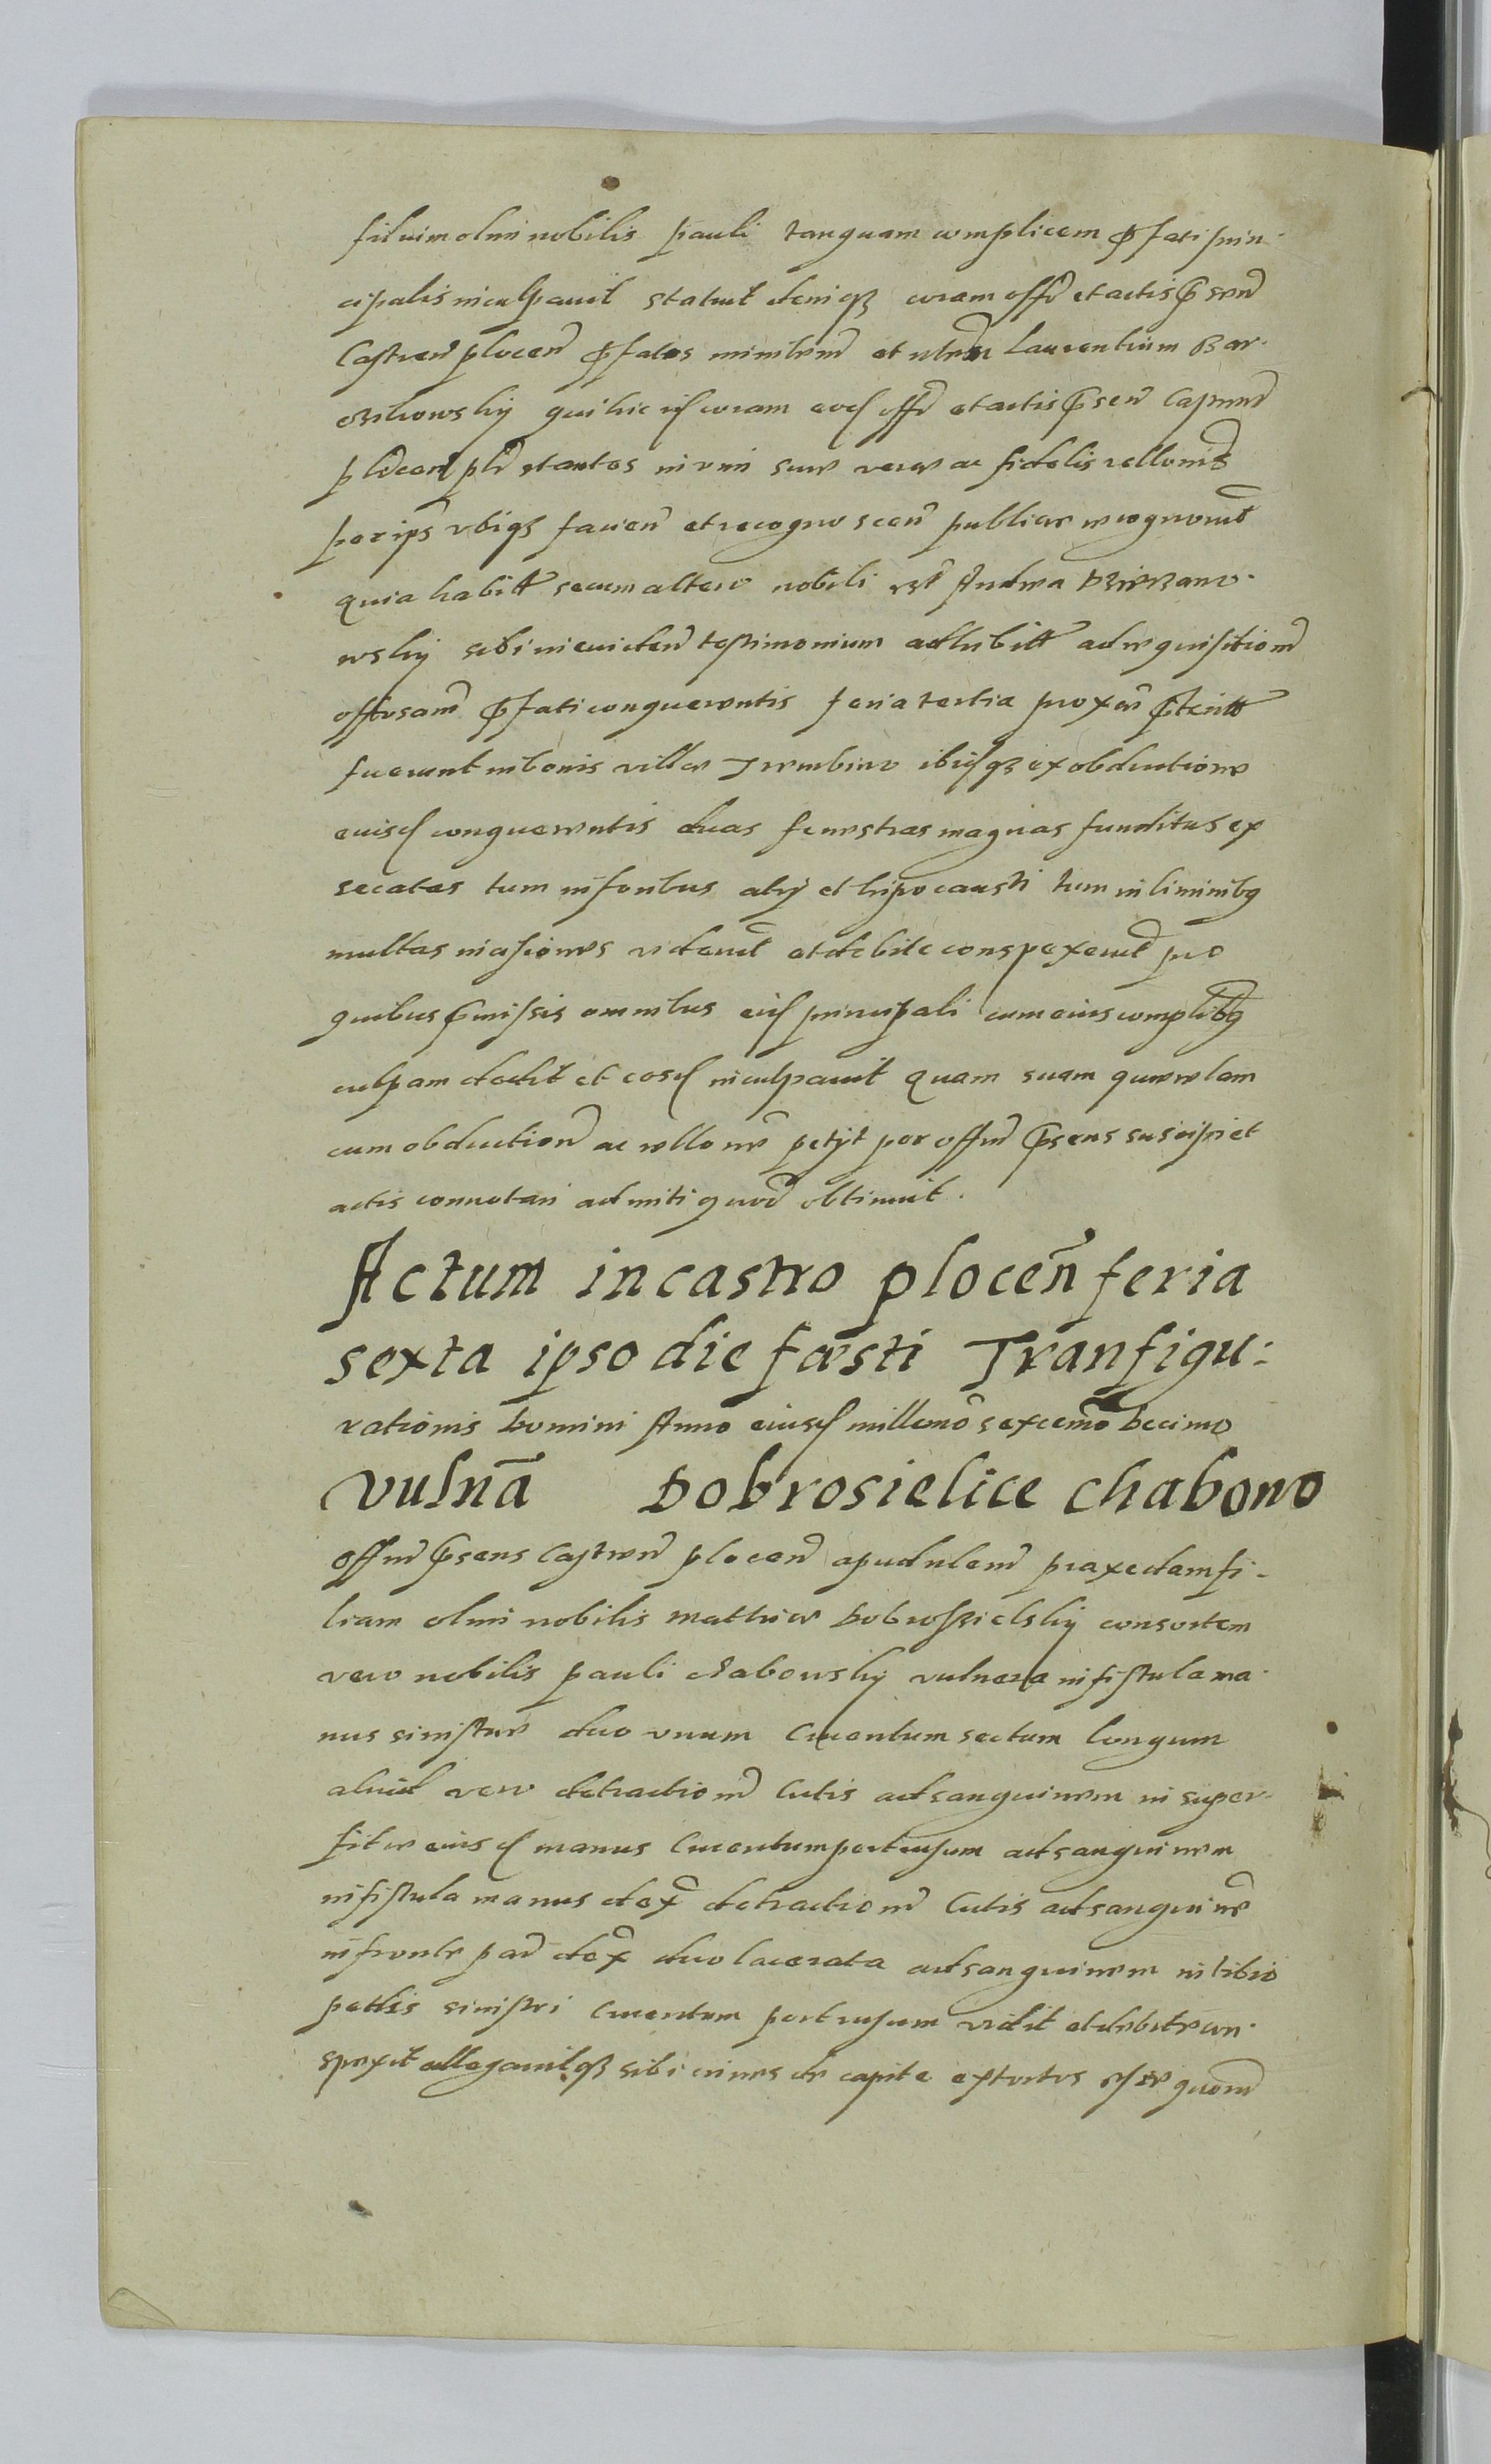 filium olim nobilis Pauli tanquam complicem pfati prin-
cipalis inculpauit statuit deniqz coram offo et actis psen
Castren plocen pfatos ministem et nlem Laurentium Bar-
cikowsky qui hic ijd coram eod offo et actis psen Capnei
plocen plr stantes in vim sue verae ac fidelis rellonis
per ips vbiqz facien et recognoscen publice recognouit
quia habitt secum altero nobili Andrea Dzierzano-
wsky sibi in euiden testimonium adhibitt ad requisitiom
offusam pfati conquerentis feria tertia proxa pteritt
fuerunt in bonis villae Trembino ibidqz ex obductione
eiusd conquerentis duas fenestras magnas funditus ex
secatas tum in foribus atrij et hipocausti tum in liminibq
multas incisiones viderut et debite conspexerut pro
quibus pmissis omnibus eid principali cum eius complibq
culpam dedit et eosd inculpauit quam suam querelam
cum obduction ac rellone petijt per offm psens suscipi et
actis connotari admiti quod obtinuit.
Actum in castro plocen feria
sexta ipso die faesti Tranfigu:
rationis Domini Anno eiusd millemo sexcemo Decimo
vulna Dobrosielice Chabono
Offm psens Castren plocen apud nlem praxedam fi-
liam olim nobilis Matthiae Dobrosszielsky consortem
vero nobilis Pauli Chabowsky vulnera in fistula ma-
nus sinistrae duo vnum Cruentum sectum longum
aliud vero detractiom Cutis ad sanguinem in super-
fitie eiusd manus Cruentum pertusum ad sanguinem
in fistula manus dex detractiom Cutis ad sanguine
in fronte par dex duo lacerata ad sanguinem in tibio
pedis sinistri Cruentum pertusum vidit et debite con-
spexit allegauitqz sibi crines de capite extortos esse quorm